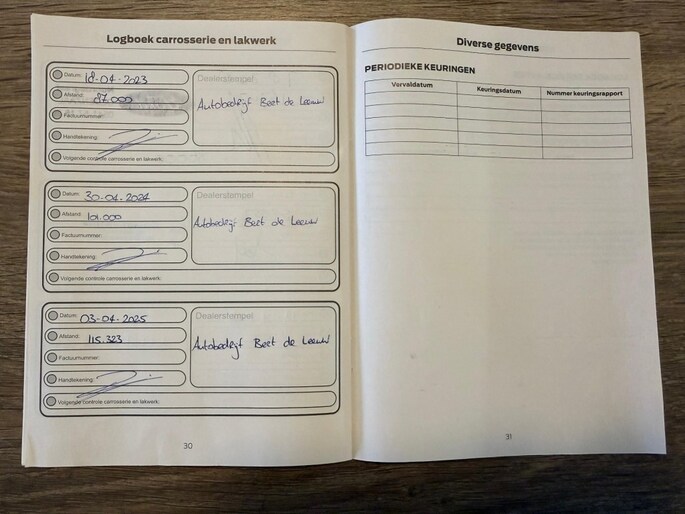 Logboek carrosserie en lakwerk
Datum: 18-04-2023
Dealerstempel
Afstand: 87.000
Autobedrijf Bert de Leeuw
Factuurnummer:
Handtekening:
Volgende controle carrosserie en lakwerk:
Datum: 30-04-2024
Dealerstempel
Afstand: 101.000
Autobedrijf Bert de Leeuw
Factuurnummer:
Handtekening:
Volgende controle carrosserie en lakwerk:
Datum: 03-04-2025
Dealerstempel
Afstand: 115.323
Autobedrijf Bert de Leeuw
Factuurnummer:
Handtekening:
Volgende controle carrosserie en lakwerk:
30
Diverse gegevens
PERIODIEKE KEURINGEN
Vervaldatum Keuringsdatum Nummer keuringsrapport
31